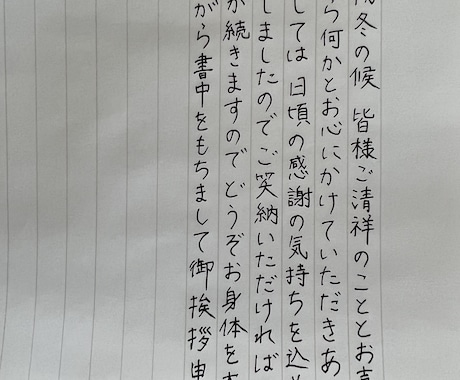 冬の候 皆様ご清祥のこととお
ら何かとお心にかけていただきあ
しては 日頃の感謝の気持ちを込
しましたので ご笑納いただければ
が続きますので どうぞお身体を
がら書中をもちまして御挨拶申